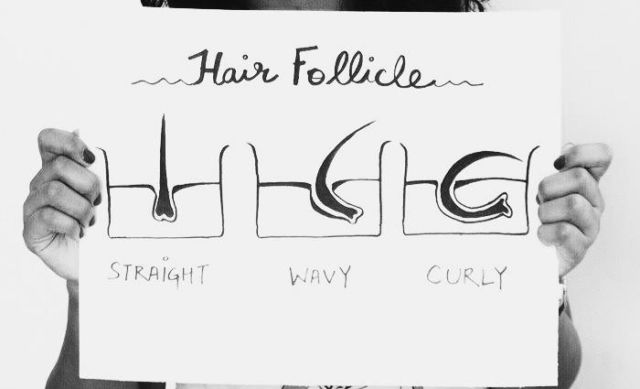 Hair Follicle
STRAIGHT
WAVY
CURLY